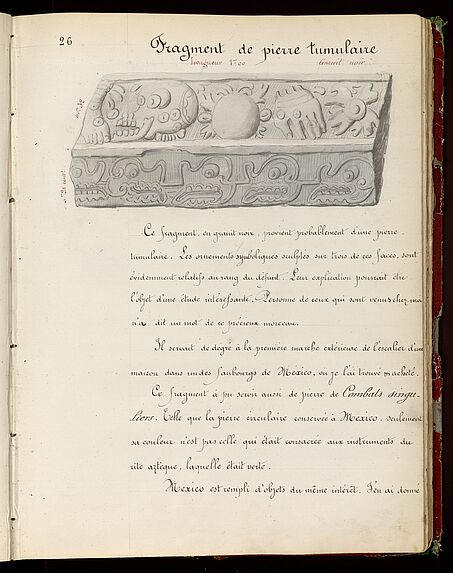 26
Fragment de pierre tumulaire
longueur 1m00 Granit noir.
Ce fragment, en granit noir, provient probablement d'une pierre
tumulaire. Les ornements symboliques sculptés sur trois de ces faces, sont
évidemment relatifs au rang du défunt. Leur explication pourrait être
l'objet d'une étude intéressante. Personne de ceux qui sont venus chez moi
n'a dit un mot de ce précieux morceau.
Il servait de degré à la première marche extérieure de l'escalier d'une
maison dans un des faubourgs de Mexico, où je l'ai trouvé & acheté.
Ce fragment à pu servir aussi de pierre de Combats singu-
liers. Telle que la pierre circulaire conservée à Mexico. seulement
sa couleur n'est pas celle qui était consacrée aux instruments du
rite aztèque, laquelle était verte.
Mexico est rempli d'objets du même intérêt. J'en ai donné